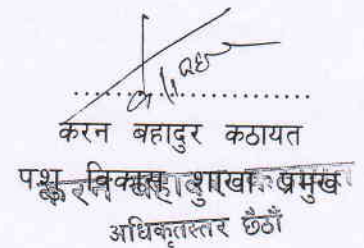 करन बहादुर कठायत
पशु विकास शाखा प्रमुख
अधिकृतस्तर छैठौँ